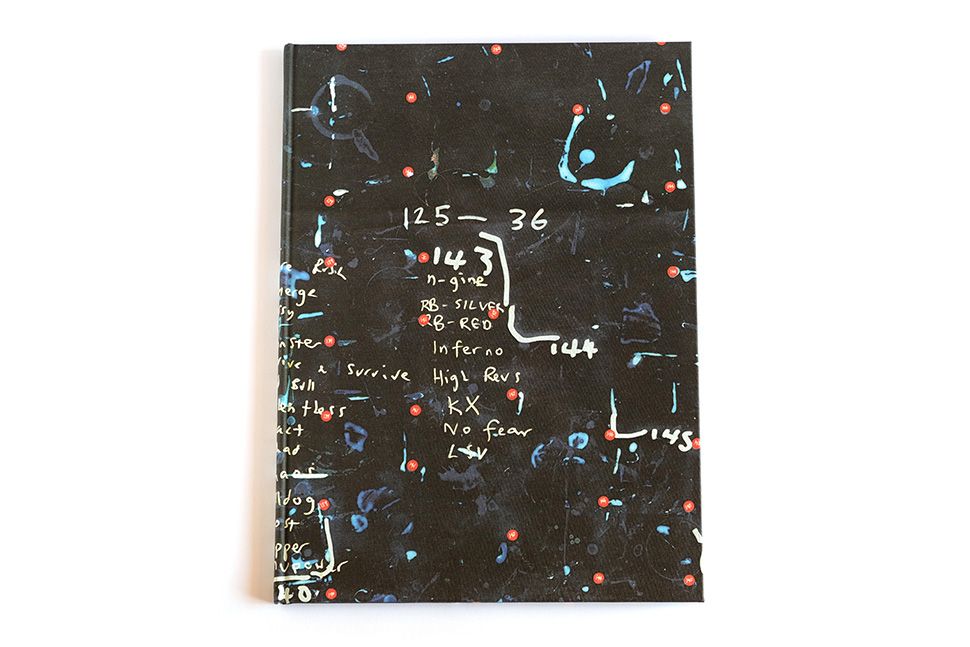 125 — 36
143
n-gine
RB-SILVER
RB-RED
Inferno
High Revs
KX
No fear
LSV
144
145
Rush
erge
sy
nster
ive & Survive
Bull
entless
act
ad
dog
ost
pper
power
40